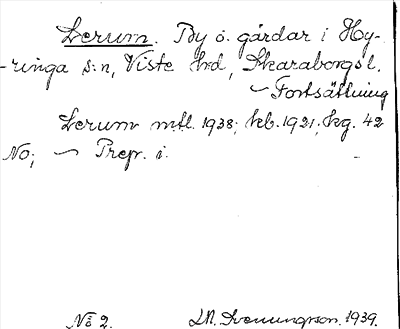 Lerum. By o. gårdar i Hy-
-ringa s:n, Viste hrd, Skaraborgs l.
~ Fortsättning
Lerum mtl. 1938; kb. 1921; kg. 42
No; ~ Prep. i.
No 2. 1939.